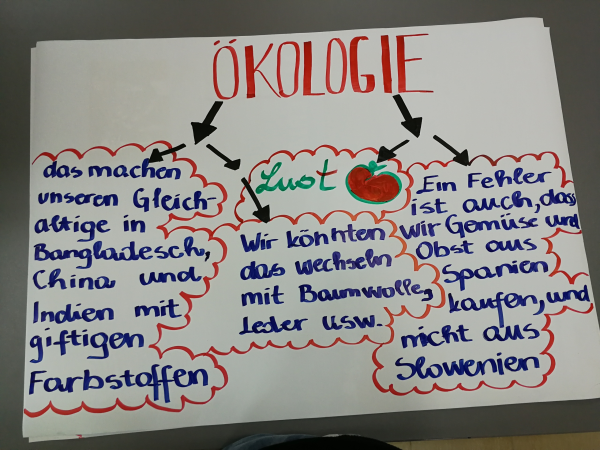 ÖKOLOGIE
das machen
unseren Gleich-
altige in
Bangladesch,
China und
Indien mit
giftigen
Farbstoffen
Lust
Wir könnten
das wechseln
mit Baumwolle,
Leder usw.
Ein Fehler
ist auch, dass
wir Gemüse und
Obst aus
Spanien
kaufen, und
nicht aus
Slowenien